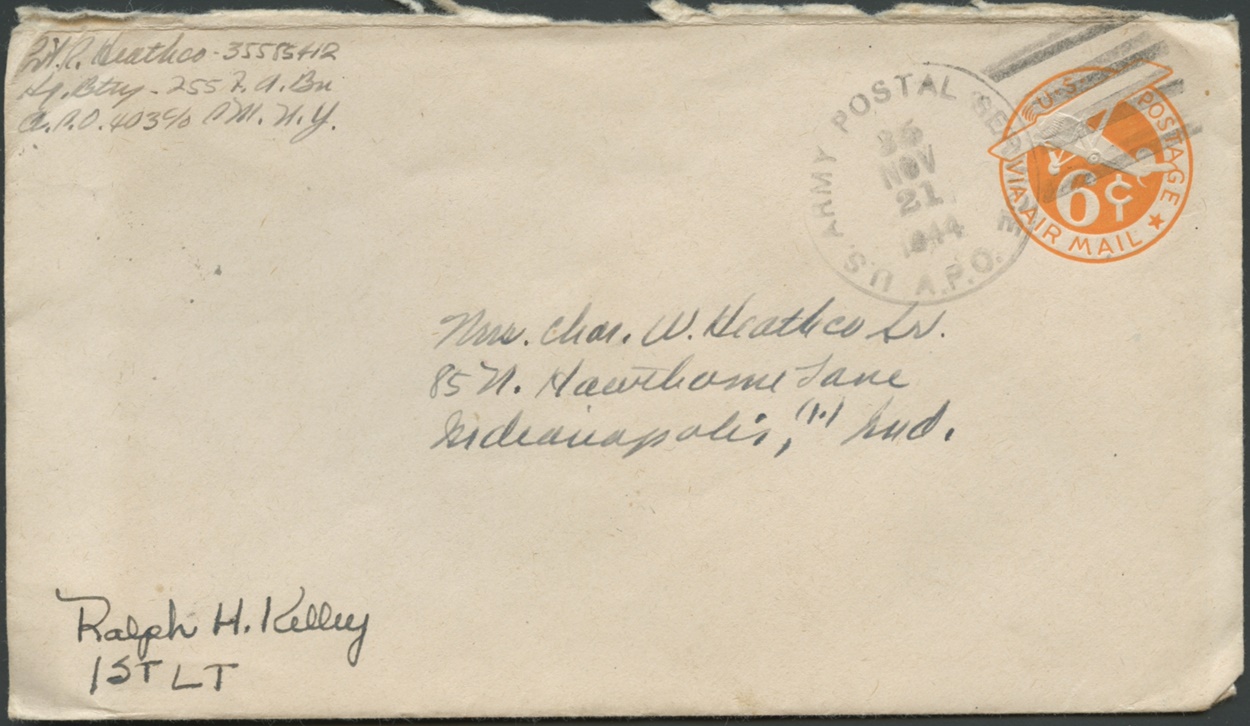 R. Heathco - 35585412
Hq. Btry - 255 F. A. Bn
A.P.O. 403 c/o P.M. N.Y.
U.S. ARMY POSTAL SERVICE
A.P.O.
NOV
21
1944
U.S. POSTAGE
6¢
VIA AIR MAIL
Mrs. Chas. W. Heathco Sr.
85 N. Hawthorne Lane
Indianapolis, (1) Ind.
Ralph H. Kelley
1ST LT